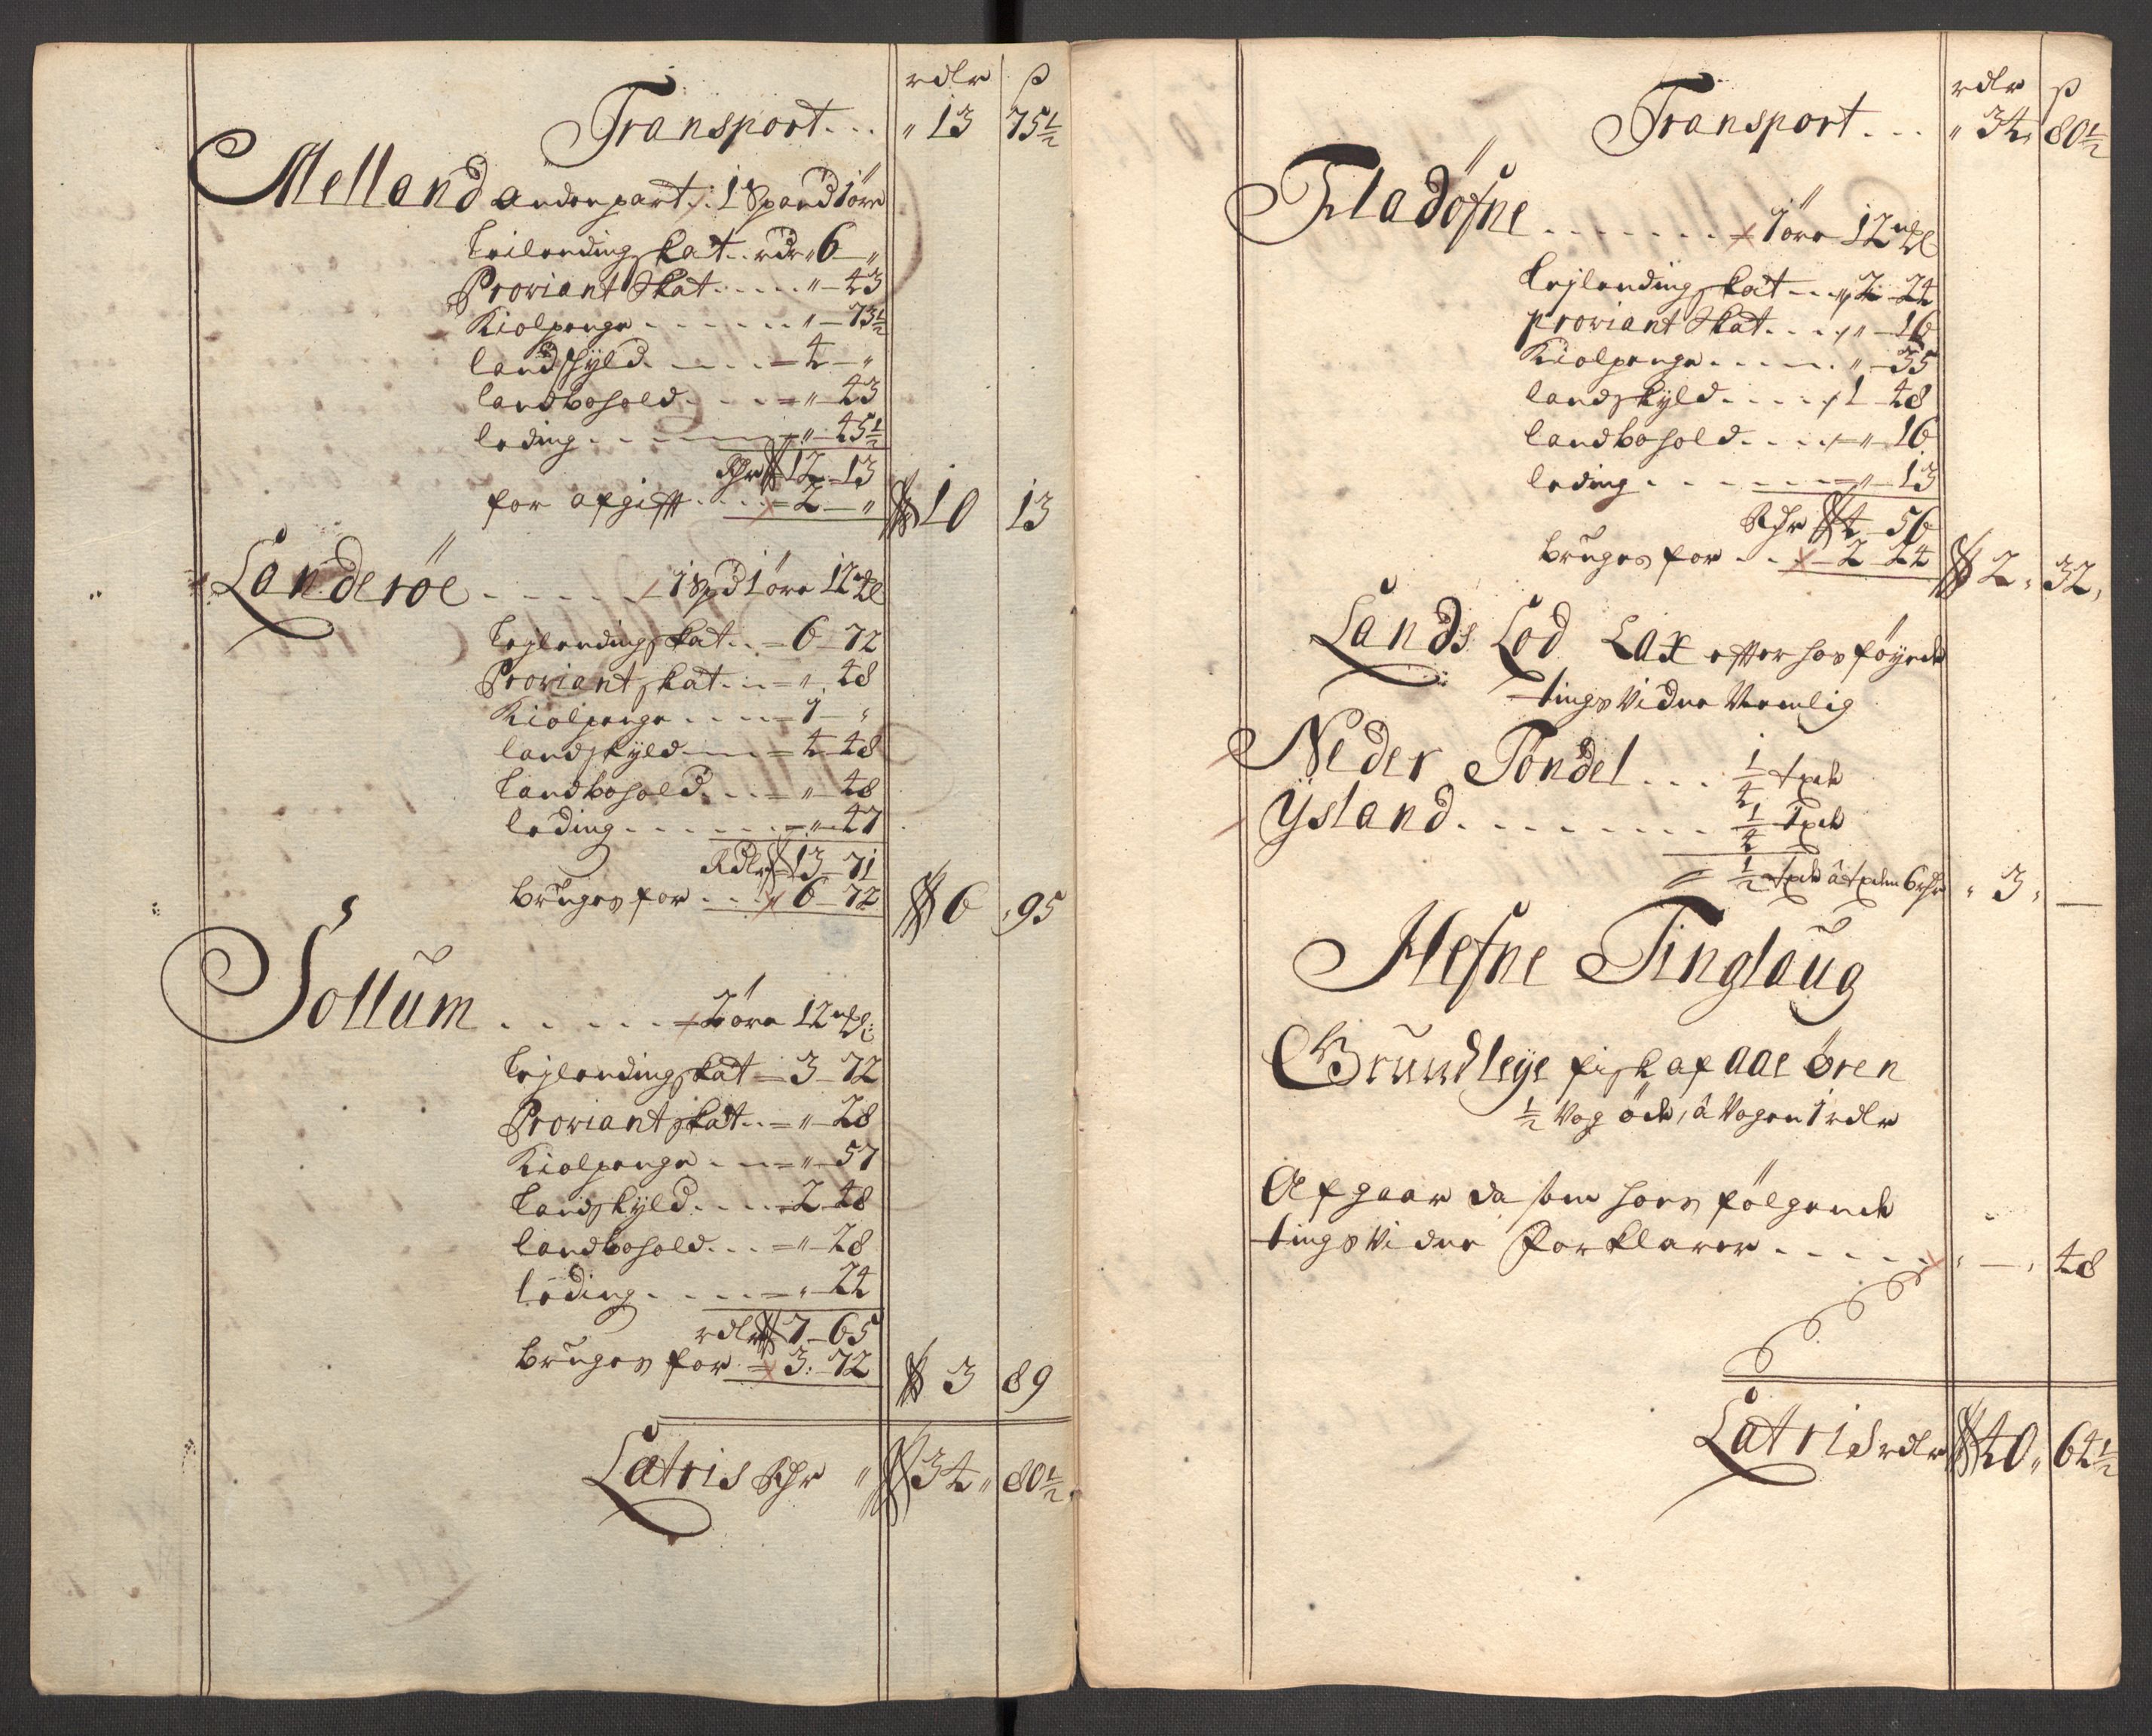 rdlr ß
Transport... " 13 75½
Melland anden part 1 Spand 1 öre
Leilending skat.. rdr " 6 - "
Proviant Skat..... " - 43
Kiolpenge....... " - 73½
landskyld...... - 4 - "
landbohold.... - " - 43
leding....... " - 45½
Rdr 12 - 13
for afgifft.... - 2 - " 10 13
Landeröe ..... 1 Spd 1 öre 12 mkl
Lejlending skat.. - 6 - 72
Proviant skat... - " 48
Kiolpenge..... - 1 - "
landskyld.... - 4 - 48
Landbohold.... - " - 48
leding...... - " - 47
Rdlr 13 - 71
bruges for... 6 - 72 6 95
Sollum ..... - 2 öre 12 mkl:
Lejlending skat - 3 - 72
Proviant skat.. - " - 28
Kiolpenge.... - " - 57
Landskyld.... - 2 - 48
landbohold... - " - 28
leding..... - " - 24
rdlr 7 - 65
bruges for - 3: - 72 3 89
Latris Rdr " 34 " 80½
rdlr ß
Transport... " 34 " 80½
Fladöfne ....... 1 öre 12 mkl
Lejlending skat... 2 - 24
proviant Skat.... " - 16
Kiolpenge...... " - 35
landskyld..... 1 - 48
landbohold.... - " - 16
leding...... - " - 13
Rdr 4 - 56
bruges for.. - 2 - 24 2 " 32,
Lands Lod Lax effter hos föyede
tings Vidne Nemlig
Neder Töndel... ¼ tpde
Ysland........ ¼ Tpde
½ tpde â tpden 6 rdr " 3 " —
Hefne Tinglaug
Grundleye fisk af Aae Ören
½ Vog öde, â Vogen 1 rdlr
Afgaar da som hoes fölgende
tings Vidne Forklarer..... " — " 48
Latris rdlr 40 " 64½